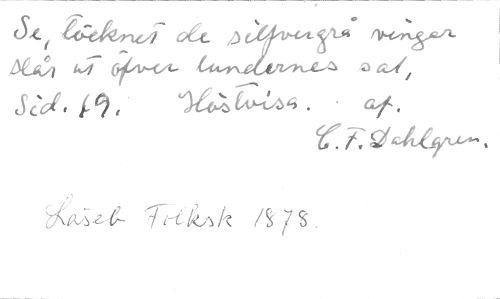 Se, töcknet de silfvergrå vingar
slår ut öfver lundernes sal,
Sid. 19. Höstvisa. af.
C. F. Dahlgren.
Läseb Folksk 1878.